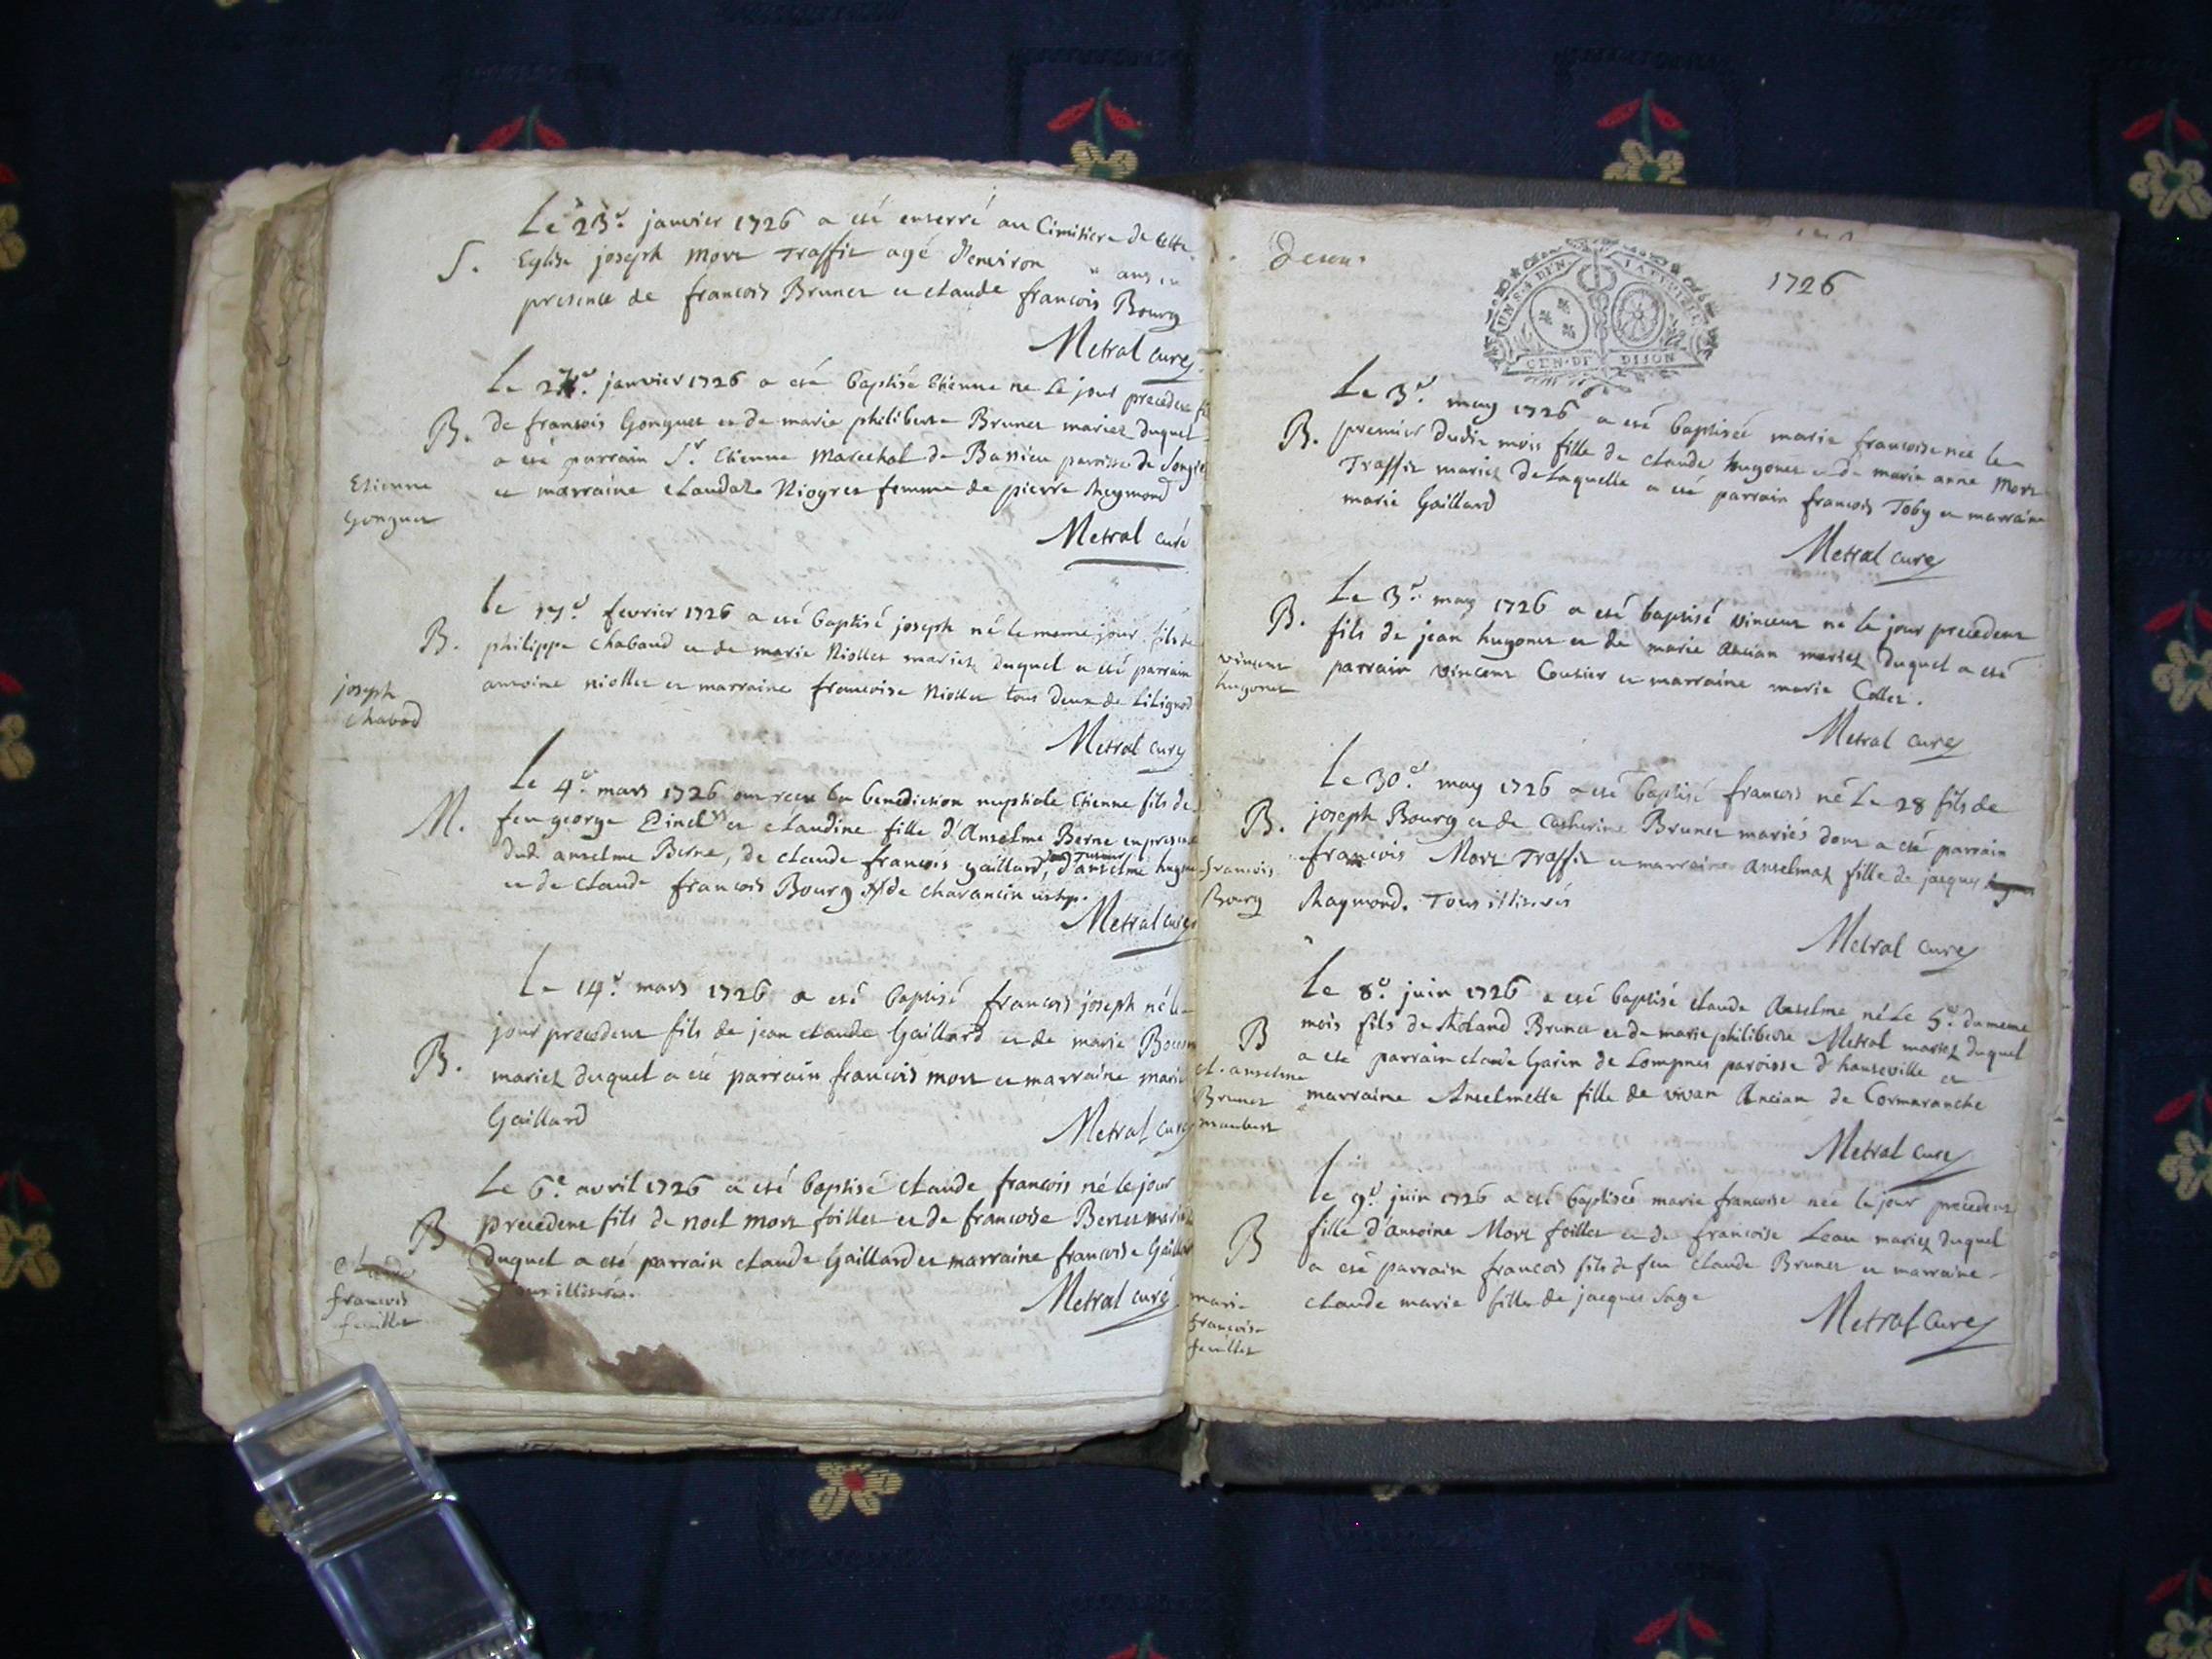 Le 23e janvier 1726 a eté enterré au Cimitiere de cette
S. Eglise joseph Mort Traffit agé d'environ ans en
presence de francois Brunet et claude francois Bourg
Metral curé
Le 27e janvier 1726 a eté baptisé Etienne né le jour precedent
B. de francois Gonguet et de marie philiberte Brunet mariez duquel
a eté parrain Sr Etienne Marechal de Bassieu parroisse de Songieu
et marraine claudaz Niogret femme de pierre Reymond
Etienne
Gonguet
Metral curé
le 17e fevrier 1726 a eté baptisé joseph né le meme jour fils de
B. philippe Chabaud et de marie Niollet mariez duquel a eté parrain
antoine niollet et marraine francoise Niollet tous deux de Lilignod
joseph
Chabod
Metral curé
Le 4e mars 1726 ont receu la benediction nuptiale Etienne fils de
M. feu george et claudine fille d'Anselme Berne en presence
dud anselme Berne, de claude francois gaillard, d'anselme
et de claude francois Bourg de charancin
Metral curé
Le 14e mars 1726 a eté baptisé francois joseph né le
jour precedent fils de jean claude Gaillard et de marie
B. mariez duquel a eté parrain francois mort et marraine marie
Gaillard
Metral curé
Le 6e avril 1726 a eté baptisé claude francois né le jour
B precedent fils de noel mort foillet et de francoise Bernet mariez
duquel a eté parrain claude Gaillard et marraine francoise Gaillard
tous illiterés.
Claude
francois
feuillet
Metral curé
1726
UN S. 4 DEN.
GEN. DE DIJON
Le 3e may 1726 a eté baptisée marie francoise née le
B. premier dudit mois fille de claude hugonet et de marie anne Mort
Traffit mariez de laquelle a eté parrain francois Toby et marraine
marie Gaillard
Metral curé
Le 3e may 1726 a eté baptisé vincent né le jour precedent
B. fils de jean hugonet et de marie Ancian mariez duquel a eté
parrain vincent Coutier et marraine marie Collet.
vincent
hugonet
Metral curé
Le 30e may 1726 a eté baptisé francois né Le 28 fils de
B. joseph Bourg et de Catherine Brunet mariés dont a eté parrain
francois Mort Traffit et marraine Anselmaz fille de jacques
Raymond. Tous illiterés
francois
Bourg
Metral curé
Le 8e juin 1726 a eté baptisé claude Anselme né Le 5e du meme
B mois fils de Roland Brunet et de marie philiberte Metral mariez duquel
a eté parrain claude Garin de Lompnes paroisse d'hauteville et
marraine Anselmette fille de vivan Ancian de Cormaranche
cl. anselme
Brunet
maubert
Metral curé
le 9e juin 1726 a eté baptiseé marie francoise née le jour precedent
B fille d'antoine Mort foillet et de francoise Leau mariez duquel
a eté parrain francois fils de feu claude Brunet et marraine
claude marie fille de jacques Sage
marie
francoise
feuillet
Metral curé